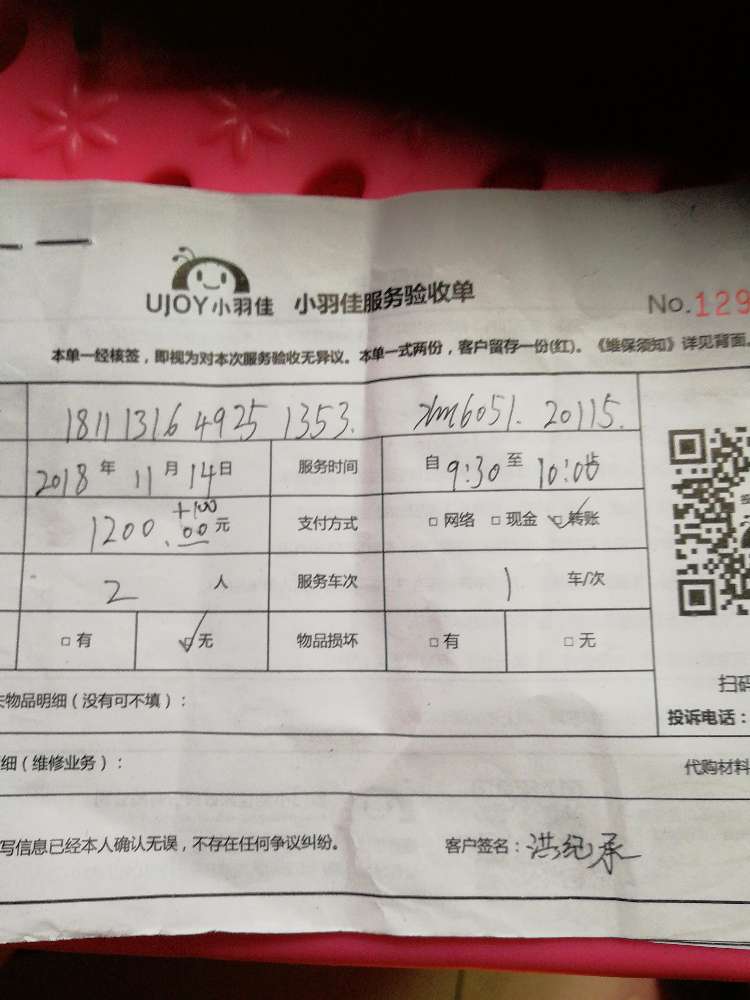 UJOY小羽佳 小羽佳服务验收单 No.129
本单一经核签，即视为对本次服务验收无异议。本单一式两份，客户留存一份(红)。《维保须知》详见背面。
1811131649251353. xm6051. 20115.
2018年11月14日 服务时间 自9:30至10:00
+100
1200.00元 支付方式 □ 网络 □ 现金 □ 转账
2人 服务车次 1车/次
□ 有 □ 无 物品损坏 □ 有 □ 无
物品明细（没有可不填）：
扫码
投诉电话：
细（维修业务）：
代购材料
写信息已经本人确认无误，不存在任何争议纠纷。 客户签名：洪纪承